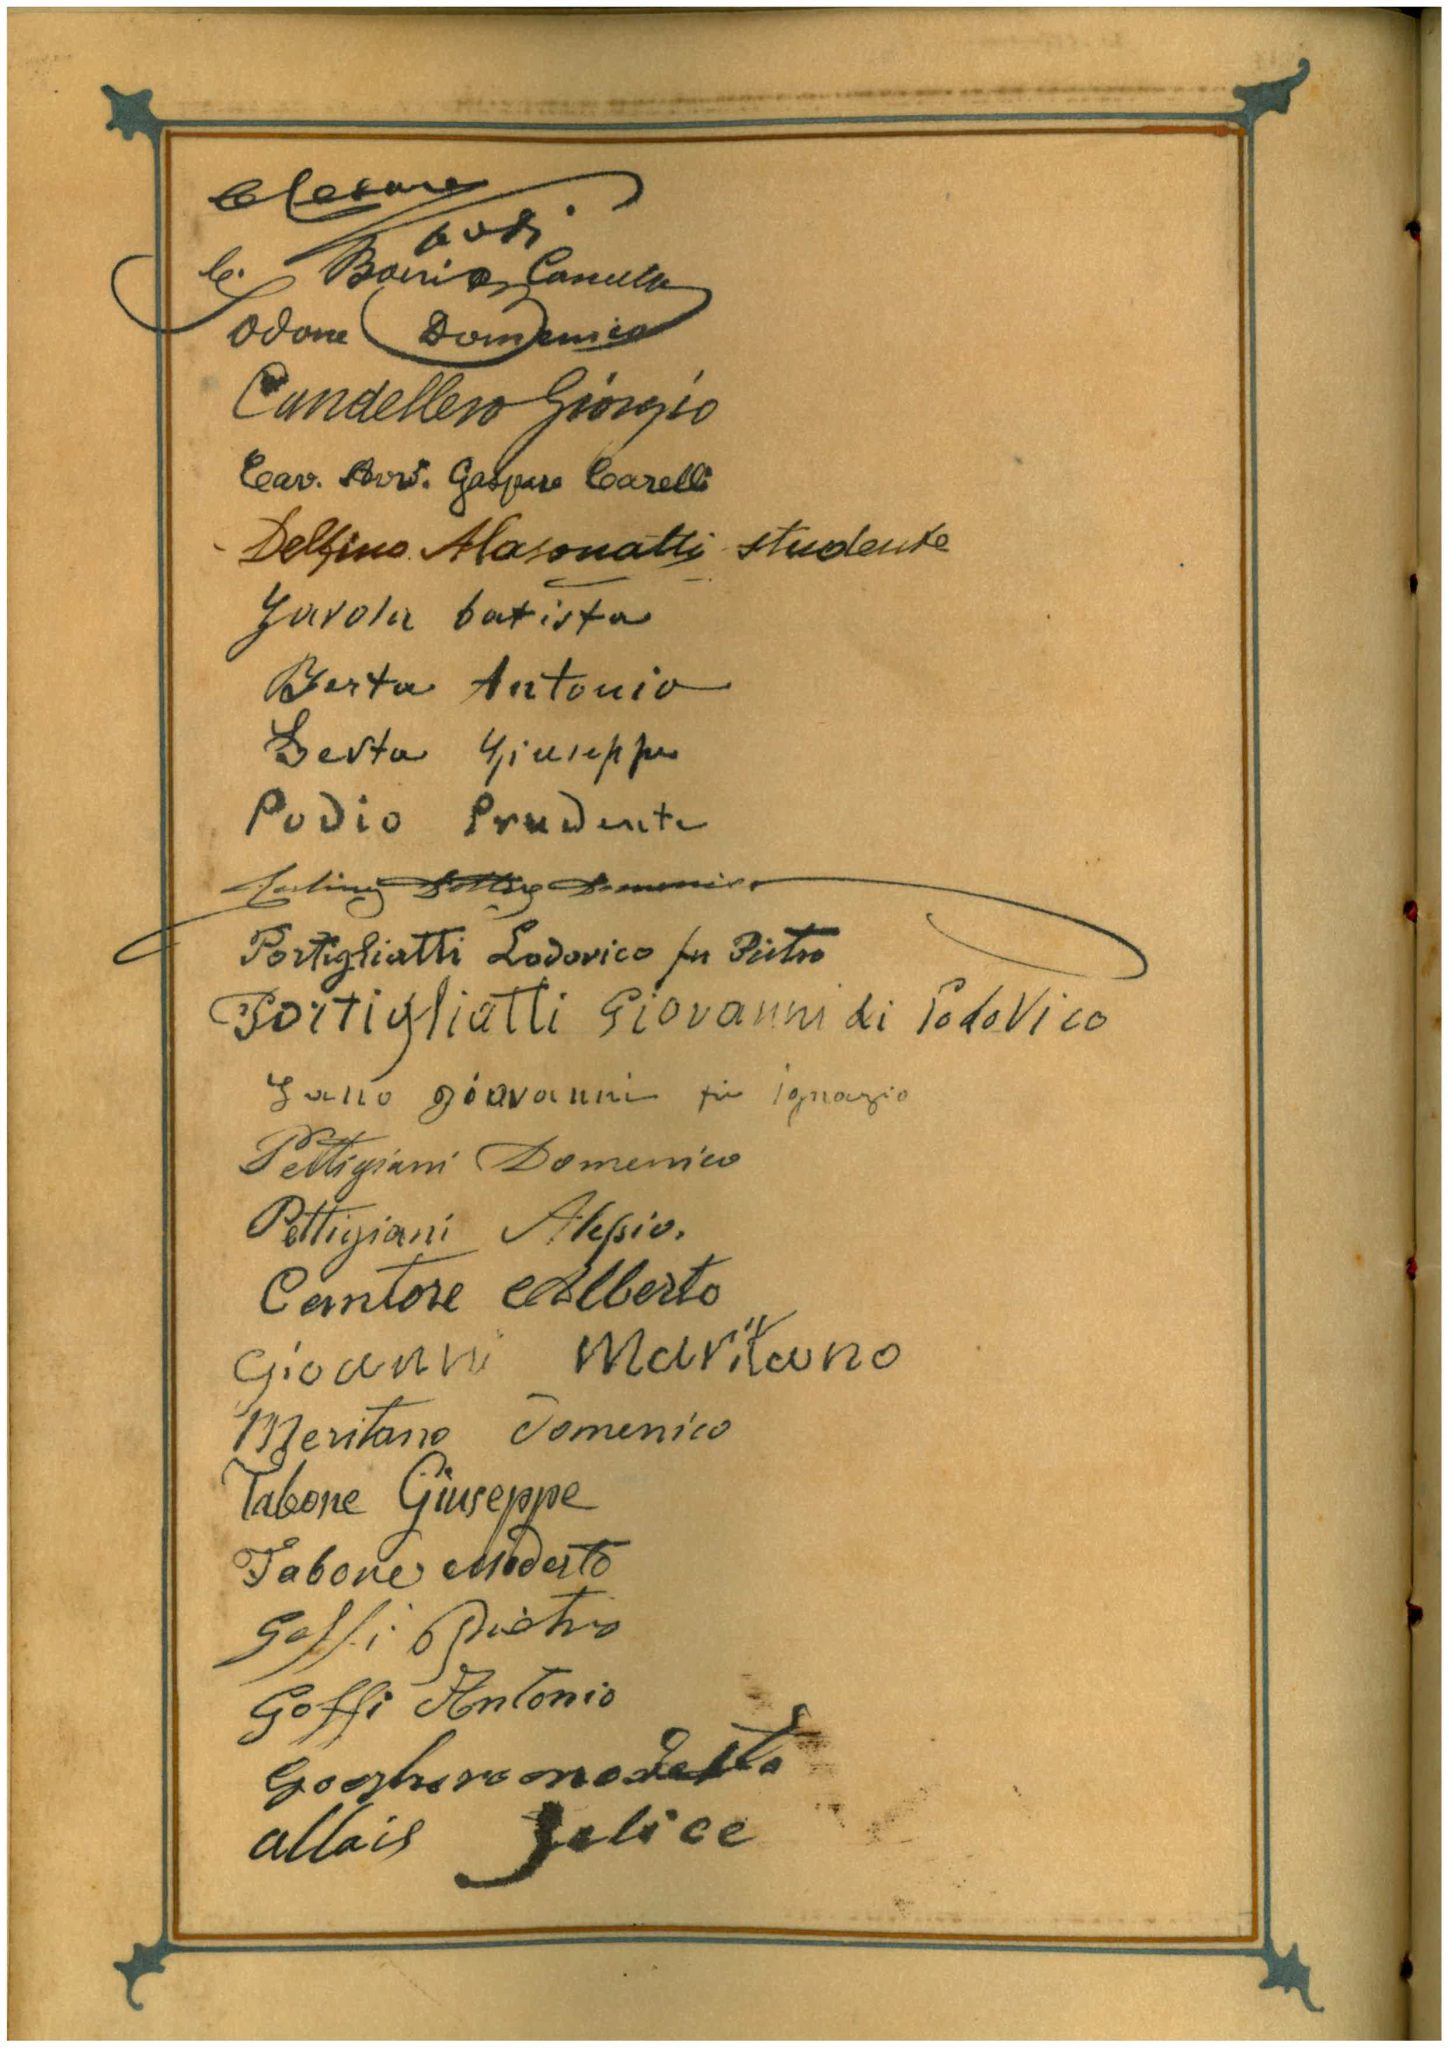 Cesare
C. Borio Camilla
Odone Domenico
Candellero Giorgio
Cav. Avv. Gaspare Carelli
Delfino Alasonatti studente
batista
Berta Antonio
Berta Giuseppe
Podio Prudente
Domenico
Portigliatti Lodovico fu Pietro
Portigliatti Giovanni di lodoVico
giovanni fu ignazio
Pettigiani Domenico
Pettigiani Alessio.
Cantore Alberto
Gioanni Maritano
Meritano Domenico
Tabone Giuseppe
Tabone Modesto
Goffi Pietro
Goffi Antonio
modesto
allais Felice